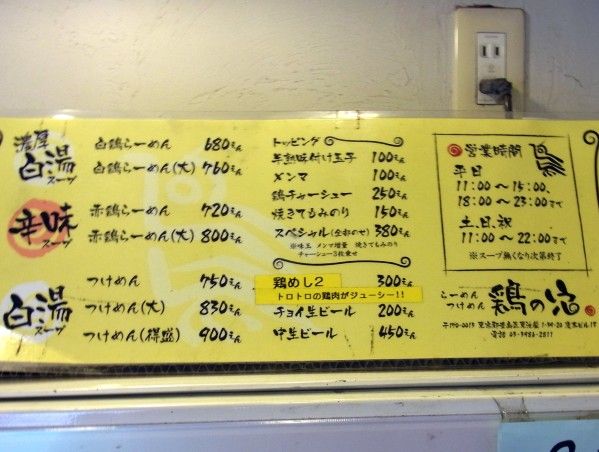 濃厚
白湯
スープ
白鶏らーめん 680えん
白鶏らーめん(大) 760えん
辛味
スープ
赤鶏らーめん 720えん
赤鶏らーめん(大) 800えん
白湯
スープ
つけめん 750えん
つけめん(大) 830えん
つけめん(得盛) 900えん
トッピング
半熟味付け玉子 100えん
メンマ 100えん
鶏チャーシュー 250えん
焼きてもみのり 150えん
スペシャル(全部のせ) 380えん
※味玉 メンマ増量 焼きてもみのり
チャーシュー3枚乗せ
鶏めし2 300えん
トロトロの鶏肉がジューシー!!
チョイ生ビール 200えん
中生ビール 450えん
営業時間
平日
11:00〜15:00、
18:00〜23:00まで
土、日、祝
11:00〜22:00まで
※スープ無くなり次第終了
らーめん
つけめん
鶏の宿
東京都豊島区東池袋
電話 03-3986-2811